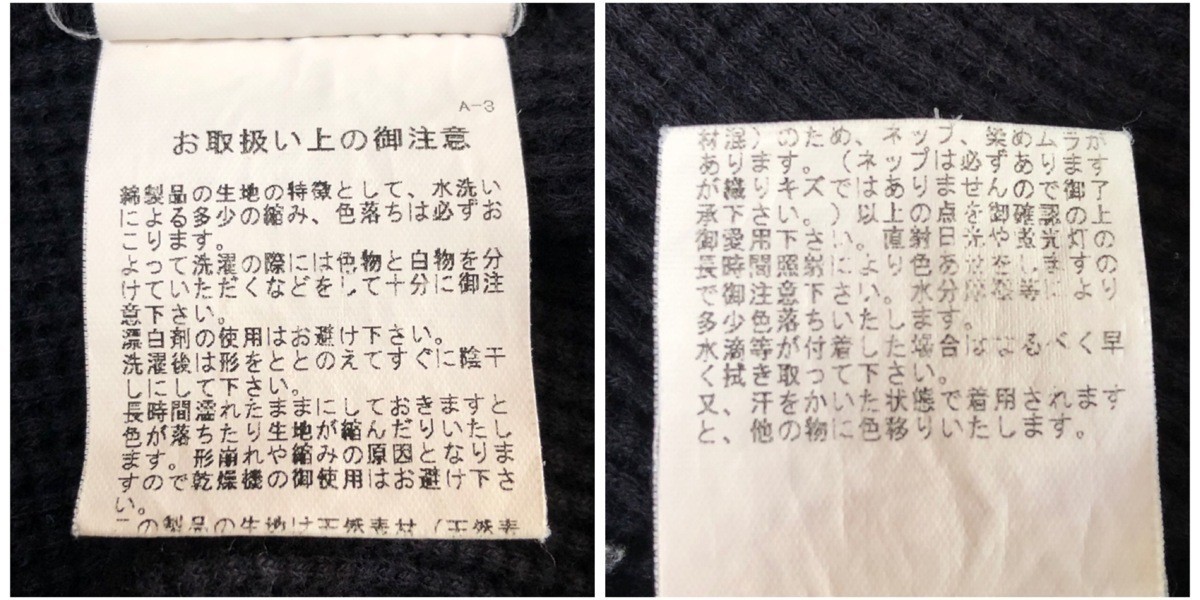 A-3
お取扱い上の御注意
綿製品の生地の特徴として、水洗い
による多少の縮み、色落ちは必ずお
こります。
よって洗濯の際には色物と白物を分
けていただくなどをして十分に御注
意下さい。
漂白剤の使用はお避け下さい。
洗濯後は形をととのえてすぐに陰干
しにして下さい。
長時間濡れたままにしておきますと
色が落ちたり生地が縮んだりいたし
ます。形崩れや縮みの原因となりま
すので乾燥機の御使用はお避け下さ
い。
この製品の生地は天然素材（天然素
材混）のため、ネップ、染めムラが
あります。（ネップは必ずあります
が織りキズではありませんので御了
承下さい。）以上の点を御確認の上
御愛用下さい。直射日光や蛍光灯の
長時間照射により色あせをしますの
で御注意下さい。水分摩擦等により
多少色落ちいたします。
水滴等が付着した場合はなるべく早
く拭き取って下さい。
又、汗をかいた状態で着用されます
と、他の物に色移りいたします。